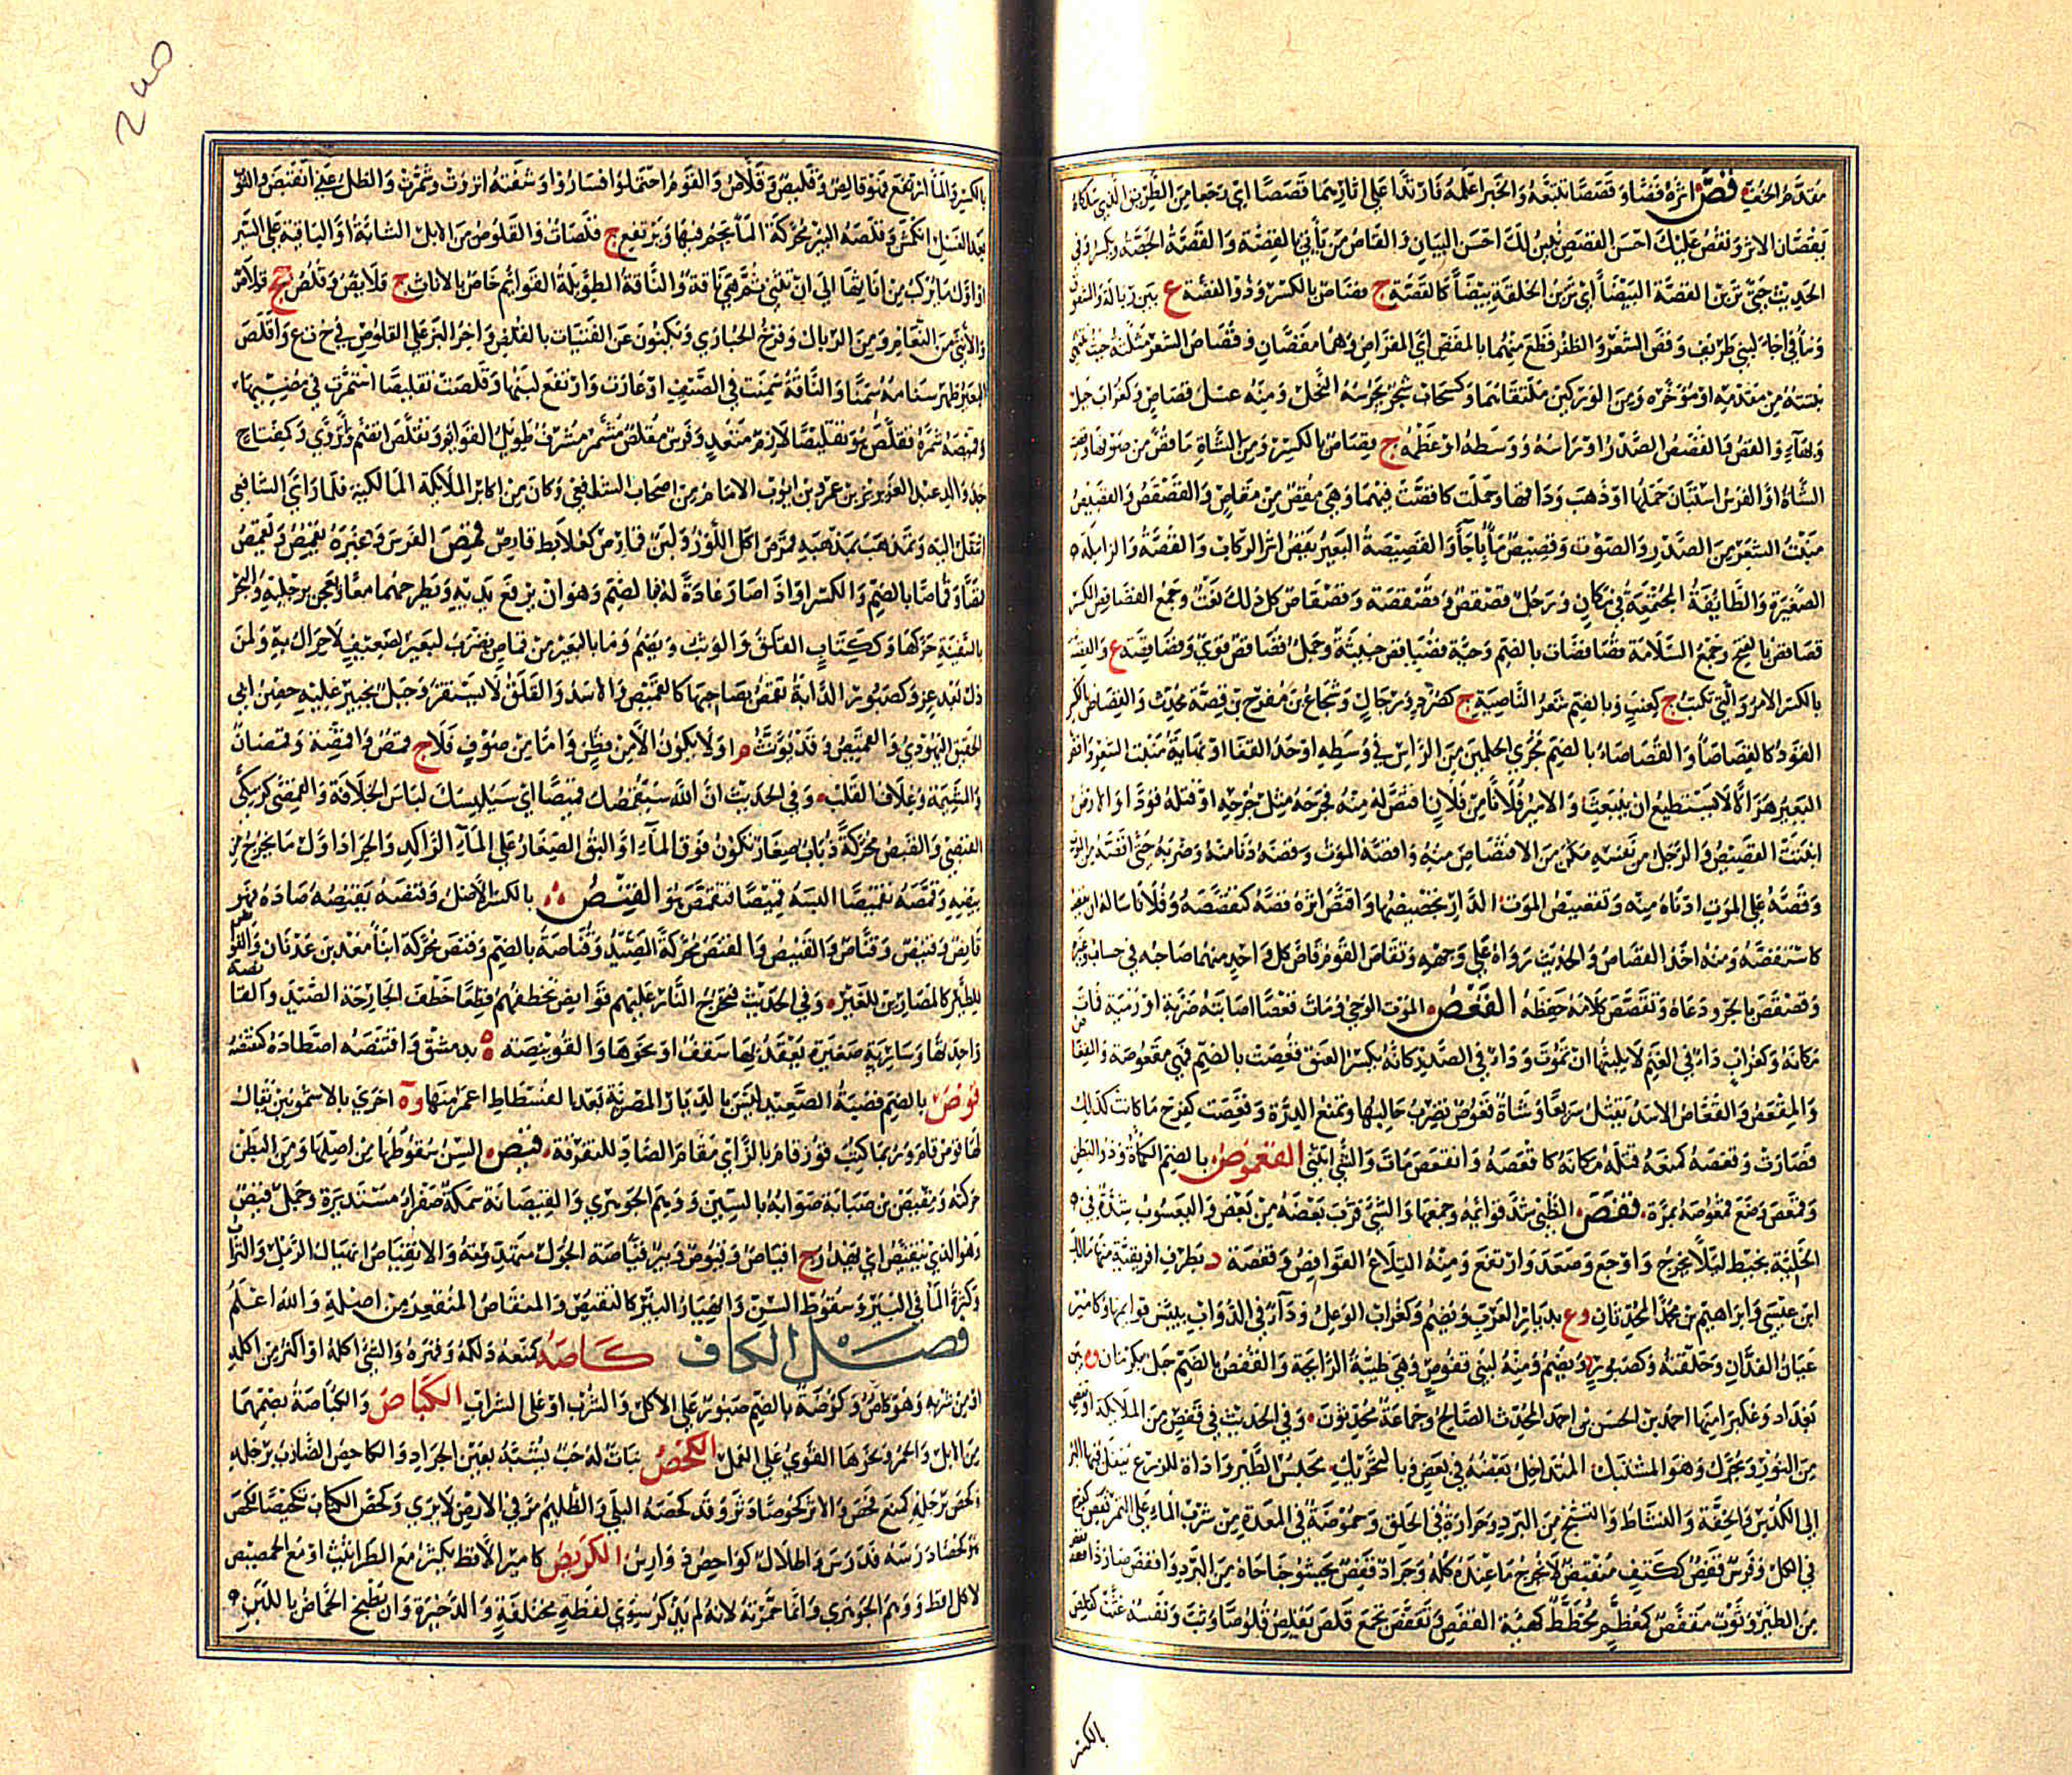 مُقَدَّمُ الخُفِّ قَصَّ أثَرَهُ قَصًّا وَقَصَصًا تَتَبَّعَهُ وَالخَبَرَ أعْلَمَهُ فَارْتَدَّا عَلى آثَارِهِمَا قَصَصًا أي رَجَعَا مِنَ الطَّرِيقِ الَّذِي سَلَكَاهُ
يَقُصَّانِ الأثَرَ وَنَقُصُّ عَلَيْكَ أحْسَنَ القَصَصِ نُبَيِّنُ لَكَ أحْسَنَ البَيَانِ وَالقَاصُّ مَنْ يَأتِي بالقِصَّةِ وَالقَصَّةُ الجَصَّةُ وَيُكْسَرُ وَفي
الحَدِيثِ حَتَّى تَرَيْنَ القَصَّةَ البَيْضَاءَ أي تَرَيْنَ الخِرْقَةَ بَيْضَاءَ كالقَصَّةِ ج قِصَاصٌ بالكسْرِ وَذُو القَصَّةِ ع بَيْنَ زُبَالَةَ وَالشُّقُوقِ
وَمَاءٌ في أجَأ لِبَنِي طَرِيفٍ وَقَصَّ الشَّعَرَ وَالظُّفُرَ قَطَعَ مِنْهُمَا بالمِقَصِّ أي المِقْرَاضِ وَهُمَا مِقَصَّانِ وَقُصَاصُ الشَّعَرِ مُثَلَّثَةً حَيْثُ تَنْتَهِي
نَبْتَتُهُ مِنْ مُقَدَّمِهِ أوْ مُؤَخَّرِهِ وَمِنَ الوَرِكَيْنِ مُلْتَقَاهُمَا وَكَسَحَابٍ شَجَرٌ يَجْرُسُهُ النَّحْلُ وَمِنْهُ عَسَلُ قَصَاصٍ وَكَغُرَابٍ جَبَلٌ
وَبِهَاءٍ ع وَالقَصُّ وَالقَصَصُ الصَّدْرُ أوْ رَأسُهُ أوْ وَسَطُهُ أوْ عَظْمُهُ ج قِصَاصٌ بالكَسْرِ وَمِنَ الشَّاةِ مَا قُصَّ مِنْ صُوفِهَا وَقَصَّتِ
الشَّاةُ أوِ الفَرَسُ اسْتَبَانَ حَمْلُهَا أوْ ذَهَبَ وِدَاقُهَا وَحَمَلَتْ كأقَصَّتْ فِيهِمَا وَهِيَ مُقِصٌّ مِنْ مَقَاصَّ وَالقَصْقَصُ وَالقَصِيصُ
مَنْبِتُ الشَّعَرِ مِنَ الصَّدْرِ وَالصَّوْتُ وَقَصِيصٌ مَاءٌ بِأجَأ وَالقَصِيصَةُ البَعِيرُ يَقُصُّ أثَرَ الرِّكَابِ وَالقِصَّةُ وَالزَّامِلَةُ
الصَّغِيرَةُ وَالطَّائِفَةُ المُجْتَمِعَةُ في مَكَانٍ وَرَجُلٌ قُصْقُصٌ وَقُصْقُصَةٌ وَقُصَاقِصٌ كُلُّ ذَلِكَ نَعْتٌ وَجَمْعُ القُصَاقِصِ المُكَسَّرُ
قَصَاقِصُ بالفَتْحِ وَجَمْعُ السَّلَامَةِ قُصَاقِصَاتٌ بالضَّمِّ وَحَيَّةٌ قُصَاقِصٌ خَبِيثَةٌ وَجَمَلٌ قُصَاقِصٌ قَوِيٌّ وَقُصَاقِصَةٌ ع وَالقِصَّةُ
بالكَسْرِ الأمْرُ وَالَّتِي تُكْتَبُ ج كعِنَبٍ وَبالضَّمِّ شَعَرُ النَّاصِيَةِ ج كصُرَدٍ وَرِجَالٍ وَشُجَاعُ بْنُ مُفَرِّجِ بْنِ قُصَّةَ مُحَدِّثٌ وَالقِصَاصُ بالكَسْرِ
القَوَدُ كالقِصَاصَاءِ وَالقُصَاصَاءِ بالضَّمِّ مَجْرَى الجَلَمَيْنِ مِنَ الرَّأسِ في وَسَطِهِ أوْ حَدُّ القَفَا أوْ نِهَايَةُ مَنْبِتِ الشَّعَرِ وَأقَصَّ
البَعِيرُ هُزِلَ لَا يَسْتَطِيعُ أنْ يَنْبَعِثَ وَالأمِيرُ فُلَانًا مِنْ فُلَانٍ اقْتَصَّ لَهُ مِنْهُ فَجَرَحَهُ مِثْلَ جَرْحِهِ أوْ قَتَلَهُ قَوَدًا وَالأرْضُ
أنْبَتَتِ القَصِيصَ وَالرَّجُلُ مِنْ نَفْسِهِ مَكَّنَ مِنَ الاقْتِصَاصِ مِنْهُ وَأقَصَّهُ المَوْتُ وَقَصَّهُ دَنَا مِنْهُ وَضَرَبَهُ حَتَّى أقَصَّهُ مِنَ المَوْتِ
وَقَصَّهُ عَلى المَوْتِ أدْنَاهُ مِنْهُ وَتَقْصِيصُ الدَّارِ تَجْصِيصُهَا وَاقْتَصَّ أثَرَهُ قَصَّهُ كتَقَصَّصَهُ وَفُلَانًا سَألَهُ أنْ يُقِصَّهُ
كاسْتَقَصَّهُ وَمِنْهُ أخَذَ القِصَاصَ وَالحَدِيثَ رَوَاهُ عَلى وَجْهِهِ وَتَقَاصَّ القَوْمُ قَاصَّ كُلُّ وَاحِدٍ مِنْهُمَا صَاحِبَهُ في حِسَابٍ وَغَيْرِهِ
وَقَصْقَصَ بالجَرْوِ دَعَاهُ وَتَقَصَّصَ كَلَامَهُ حَفِظَهُ القَعْصُ المَوْتُ الوَحِيُّ وَمَاتَ قَعْصًا أصَابَتْهُ ضَرْبَةٌ أوْ رَمْيَةٌ فَمَاتَ
مَكَانَهُ وَكَغُرَابٍ دَاءٌ في الغَنَمِ لَا يُلْبِثُهَا أنْ تَمُوتَ وَدَاءٌ في الصَّدْرِ كأنَّهُ يَكْسِرُ العُنُقَ قُعِصَتْ بالضَّمِّ فَهِيَ مَقْعُوصَةٌ
وَالمِقْعَصُ وَالقَعَّاصُ الأسَدُ يَقْتُلُ سَرِيعًا وَشَاةٌ قَعُوصٌ تَضْرِبُ حَالِبَهَا وَتَمْنَعُ الدِّرَّةَ وَقَعِصَتْ كفَرِحَ مَا كَانَتْ كَذَلِكَ
فَصَارَتْ وَقَعَصَهُ كمَنَعَهُ قَتَلَهُ مَكَانَهُ كأقْعَصَهُ وَانْقَعَصَ مَاتَ وَالشَّيْءُ انْثَنَى القُعْمُوصُ بالضَّمِّ الكَمْأةُ وَذُو البَطْنِ
وَقَعْمَصَ وَضَعَ قُعْمُوصَهُ بِمَرَّةٍ قَفَصَ الظَّبْيَ شَدَّ قَوَائِمَهُ وَجَمَعَهَا وَالشَّيْءَ قَرَّبَ بَعْضَهُ مِنْ بَعْضٍ وَاليَعْسُوبَ شَدَّهُ في
الخَلِيَّةِ بِخَيْطٍ لِئَلَّا يَخْرُجَ وَأوْجَعَ وَصَعِدَ وَارْتَفَعَ وَمِنْهُ التِّلَاعُ القَوَافِصُ وَقَفْصَةُ د بِطَرَفِ إفْرِيقِيَّةَ مِنْهَا مَالِكُ
ابْنُ عِيسَى وَإبْرَاهِيمُ بْنُ مُحَمَّدٍ المُحَدِّثَانِ وَ ع بِدِيَارِ العَرَبِ وَيُضَمُّ وَكَغُرَابٍ الوَعِلُ وَدَاءٌ في الدَّوَابِّ يُيَبِّسُ قَوَائِمَهَا وَكأمِيرٍ
عَيَانُ الفَدَّانِ وَحَلْقَتُهُ وَكَصَبُورٍ د وَيُضَمُّ وَمِنْهُ لُبْنَى قَفُوصٍ وَهِيَ طَيِّبَةُ الرَّائِحَةِ وَالقُفْصُ بالضَّمِّ جَبَلٌ بِكِرْمَانَ وَ ة بَيْنَ
بَغْدَادَ وَعُكْبَرَا مِنْهَا أحْمَدُ بْنُ الحَسَنِ بْنِ أحْمَدَ المُحَدِّثُ الصَّالِحُ وَجَمَاعَةٌ مُحَدِّثُونَ وَفي الحَدِيثِ في قُفْصٍ مِنَ المَلَائِكَةِ
مِنَ النُّورِ وَيُحَرَّكُ وَهُوَ المُشْتَبِكُ المُتَدَاخِلُ بَعْضُهُ في بَعْضٍ وَبالتَّحْرِيكِ مَحْبِسُ الطَّيْرِ وَأدَاةٌ لِلزَّرْعِ يُنْقَلُ فِيهَا البُرُّ
إلى الكُدْسِ وَالخِفَّةُ وَالنَّشَاطُ وَالتَّشَنُّجُ مِنَ البَرْدِ وَحَرَارَةٌ في الحَلْقِ وَحُمُوضَةٌ في المَعِدَةِ مِنْ شُرْبِ المَاءِ عَلى التَّمْرِ
في الكُلِّ وَفَرَسٌ قَفِصٌ ككَتِفٍ مُنْقَبِضٌ لَا يُخْرِجُ مَا عِنْدَهُ كُلَّهُ وَجَرَادٌ قَفِصٌ يَجْسُو جَنَاحَاهُ مِنَ البَرْدِ وَأقْفَصَ صَارَ ذَا قَفَصٍ
مِنَ الطَّيْرِ وَثَوْبٌ مُقَفَّصٌ كمُعَظَّمٍ مُخَطَّطٌ كهَيْئَةِ القَفَصِ وَتَقَفَّصَ تَجَمَّعَ قَلَصَ يَقْلِصُ قُلُوصًا وَثَبَ وَنَفْسُهُ غَثَتْ كقَلِصَ
بالكسر
بالكَسْرِ وَالمَاءُ ارْتَفَعَ فَهُوَ قَالِصٌ وَقَلِيصٌ وَقَلَّاصٌ وَالقَوْمُ احْتَمَلُوا فَسَارُوا وَشَفَتُهُ انْزَوَتْ وَشَمَّرَتْ وَالظِّلُّ عَنِّي انْقَبَضَ وَالثَّوْبُ
بَعْدَ الغَسْلِ انْكَمَشَ وَقَلَصَةُ البِئْرِ مُحَرَّكَةً المَاءُ يَجُمُّ فِيهَا وَيَرْتَفِعُ ج قَلَصَاتٌ وَالقَلُوصُ مِنَ الإبِلِ الشَّابَّةُ أوِ البَاقِيَةُ عَلى السَّيْرِ
أوْ أوَّلُ مَا يُرْكَبُ مِنْ إنَاثِهَا إلى أنْ تُثْنِيَ ثُمَّ هِيَ نَاقَةٌ وَالنَّاقَةُ الطَّوِيلَةُ القَوَائِمِ خَاصٌّ بالإنَاثِ ج قَلَائِصُ وَقُلُصٌ جج قِلَاصٌ
وَالأنْثَى مِنَ النَّعَامِ وَمِنَ الرِّئَالِ وَفَرْخُ الحُبَارَى وَيَكْنُونَ عَنِ الفَتَيَاتِ بالقُلُصِ وَآخِرُ البَزِّ عَلى القَلُوصِ في خ ت ع وَأقْلَصَ
البَعِيرُ ظَهَرَ سَنَامُهُ سِمَنًا وَالنَّاقَةُ سَمِنَتْ في الصَّيْفِ أوْ غَارَتْ وَارْتَفَعَ لَبَنُهَا وَقَلَّصَتْ تَقْلِيصًا اسْتَمَرَّتْ في مُضِيِّهَا
وَقَمِيصَهُ شَمَّرَهُ فَتَقَلَّصَ هُوَ تَقْلِيصًا لَازِمٌ مُتَعَدٍّ وَفَرَسٌ مُقَلِّصٌ مُشَمِّرٌ مُشْرِفٌ طَوِيلُ القَوَائِمِ وَتَقَلَّصَ انْضَمَّ وَانْزَوَى وَكَمِفْتَاحٍ
جَدُّ وَالِدِ عَبْدِ العَزِيزِ بْنِ عِمْرَانَ بْنِ أيُّوبَ الإمَامُ مِنْ أصْحَابِ الشَّافِعِيِّ وَكَانَ مِنْ أكَابِرِ المَالِكِيَّةِ فَلَمَّا رَأى الشَّافِعِيَّ
انْتَقَلَ إلَيْهِ وَتَمَذْهَبَ بِمَذْهَبِهِ قَمَرَصَ أكَلَ اللَّوْزَ وَلَبَنٌ قُمَارِصٌ كعُلَابِطٍ قَارِصٌ قَمَصَ الفَرَسُ وَغَيْرُهُ يَقْمُصُ وَيَقْمِصُ
قَمْصًا وَقُمَاصًا بالضَّمِّ وَالكَسْرِ أوْ إذَا صَارَ عَادَةً لَهُ فَبالضَّمِّ وَهُوَ أنْ يَرْفَعَ يَدَيْهِ وَيَطْرَحَهُمَا مَعًا وَيَعْجِنَ بِرِجْلَيْهِ وَالبَحْرُ
بالسَّفِينَةِ حَرَّكَهَا وَكَكِتَابٍ القَلَقُ وَالوَثْبُ وَيُضَمُّ وَمَا بالبَعِيرِ مِنْ قُمَاصٍ يُضْرَبُ لِبَعِيرٍ ضَعِيفٍ لَا حَرَاكَ بِهِ وَلِمَنْ
ذَلَّ بَعْدَ عِزٍّ وَكَصَبُورٍ الدَّابَّةُ تَقْمِصُ بِصَاحِبِهَا كالقَمِيصِ وَالأسَدُ وَالقَلِقُ لَا يَسْتَقِرُّ وَجَبَلٌ بِخَيْبَرَ عَلَيْهِ حِصْنُ أبِي
الحُقَيْقِ اليَهُودِيِّ وَالقَمِيصُ وَقَدْ يُؤَنَّثُ م أوْ لَا يَكُونُ إلَّا مِنْ قُطْنٍ وَأمَّا مِنْ صُوفٍ فَلَا ج قُمُصٌ وَأقْمِصَةٌ وَقُمْصَانٌ
وَالمَشِيمَةُ وَغِلَافُ القَلْبِ وَفي الحَدِيثِ إنَّ اللَّهَ سَيُقَمِّصُكَ قَمِيصًا أي سَيُلْبِسُكَ لِبَاسَ الخِلَافَةِ وَالقِمِصَّى كزِمِكَّى
القِبِصَّى وَالقَمَصُ مُحَرَّكَةً ذُبَابٌ صِغَارٌ تَكُونُ فَوْقَ المَاءِ أوِ البَقُّ الصِّغَارُ عَلى المَاءِ الرَّاكِدِ وَالجَرَادُ أوَّلَ مَا يَخْرُجُ مِنْ
بَيْضِهِ وَقَمَّصَهُ تَقْمِيصًا ألْبَسَهُ قَمِيصًا فَتَقَمَّصَ هُوَ القِنْصُ بالكَسْرِ الأصْلُ وَقَنَصَهُ يَقْنِصُهُ صَادَهُ فَهُوَ
قَانِصٌ وَقَنِيصٌ وَقَنَّاصٌ وَالقَنِيصُ وَالقَنَصُ مُحَرَّكَةً الصَّيْدُ وَقُنَاصَةُ بالضَّمِّ وَقَنَصٌ مُحَرَّكَةً ابْنَا مَعَدِّ بْنِ عَدْنَانَ وَالقَوَانِصُ
لِلطَّيْرِ كالمَصَارِينِ لِلغَيْرِ وَفي الحَدِيثِ فَتُخْرِجُ النَّارُ عَلَيْهِمْ قَوَانِصَ تَخْطَفُهُمْ قِطَعًا خَطْفَ الجَارِحَةِ الصَّيْدَ وَالقَانِصَةُ
وَاحِدَتُهَا وَسَارِيَةٌ صَغِيرَةٌ يُعْقَدُ بِهَا سَقْفٌ أوْ نَحْوُهَا وَالقُوَيْنِصَةُ ة بِدِمَشْقَ وَاقْتَنَصَهُ اصْطَادَهُ كتَقَنَّصَهُ
قُوصُ بالضَّمِّ قَصَبَةُ الصَّعِيدِ لَيْسَ بالدِّيَارِ المِصْرِيَّةِ بَعْدَ الفُسْطَاطِ أعْمَرُ مِنْهَا وَ ة أخْرَى بالأشْمُونَيْنِ يُقَالُ
لَهَا قُوصُ قَامَ وَرُبَّمَا كُتِبَ قُوزُ قَامَ بالزَّايِ مَقَامَ الصَّادِ لِلتَّفْرِقَةِ قَيْصُ السِّنِّ سُقُوطُهَا مِنْ أصْلِهَا وَمِنَ البَطْنِ
حَرَكَتُهُ وَمِقْيَصُ بْنُ صُبَابَةَ صَوَابُهُ بالسِّينِ وَوَهِمَ الجَوْهَرِيُّ وَالقَيْصَانَةُ سَمَكَةٌ صَفْرَاءُ مُسْتَدِيرَةٌ وَجَمَلٌ قَيْصٌ
وَهُوَ الَّذِي يَتَقَيَّصُ أي يَهْدِرُ ج أقْيَاصٌ وَقُيُوصٌ وَبِئْرٌ قَيَّاصَةُ الجُولِ مُتَهَدِّمَتُهُ وَالانْقِيَاصُ انْهِيَالُ الرَّمْلِ وَالتُّرَابِ
وَكَثْرَةُ المَاءِ في البِئْرِ وَسُقُوطُ السِّنِّ وَانْهِيَارُ البِئْرِ كالتَّقَيُّصِ وَالمُنْقَاصُ المُنْقَعِرُ مِنْ أصْلِهِ وَاللَّهُ أعْلَمُ
فصل الكاف كَأصَهُ كمَنَعَهُ دَلَكَهُ وَقَهَرَهُ وَالشَّيْءَ أكَلَهُ أوْ أكْثَرَ مِنْ أكْلِهِ
أوْ مِنْ شُرْبِهِ وَهُوَ كأصٌ وَكُؤْصَةٌ بالضَّمِّ صَبُورٌ عَلى الأكْلِ وَالشُّرْبِ أوْ عَلى الشَّرَابِ الكُبَاصُ وَالكُبَاصَةُ بِضَمِّهِمَا
مِنَ الإبِلِ وَالحُمُرِ وَنَحْوِهَا القَوِيُّ عَلى العَمَلِ الكَحْصُ نَبَاتٌ لَهُ حَبٌّ يُشَبَّهُ بِعَيْنِ الجَرَادِ وَالكَاحِصُ الضَّارِبُ بِرِجْلِهِ
كَحَصَ بِرِجْلِهِ كمَنَعَ فَحَصَ وَالأثَرُ كُحُوصًا دَثَرَ وَقَدْ كَحَصَهُ البِلَى وَالظَّلِيمُ مَرَّ في الأرْضِ لَا يُرَى وَكَحَّصَ الكِتَابَ تَكْحِيصًا فَكَحَصَ
هُوَ كَحْصًا دَرَسَهُ فَدَرَسَ وَأطْلَالٌ كَوَاحِصُ دَوَارِسُ الكَرِيصُ كأمِيرٍ الأقِطُ يُكْنَزُ مَعَ الطَّرَاثِيثِ أوْ مَعَ الحَمَصِيصِ
لَا كُلُّ أقِطٍ وَوَهِمَ الجَوْهَرِيُّ وَإنَّمَا حَمَّرْتُهُ لِأنَّهُ لَمْ يَذْكُرْ سِوَى لَفْظَةٍ مُخْتَلَّةٍ وَالذَّخِيرَةُ وَأنْ يُطْبَخَ الحُمَّاضُ باللَّبَنِ